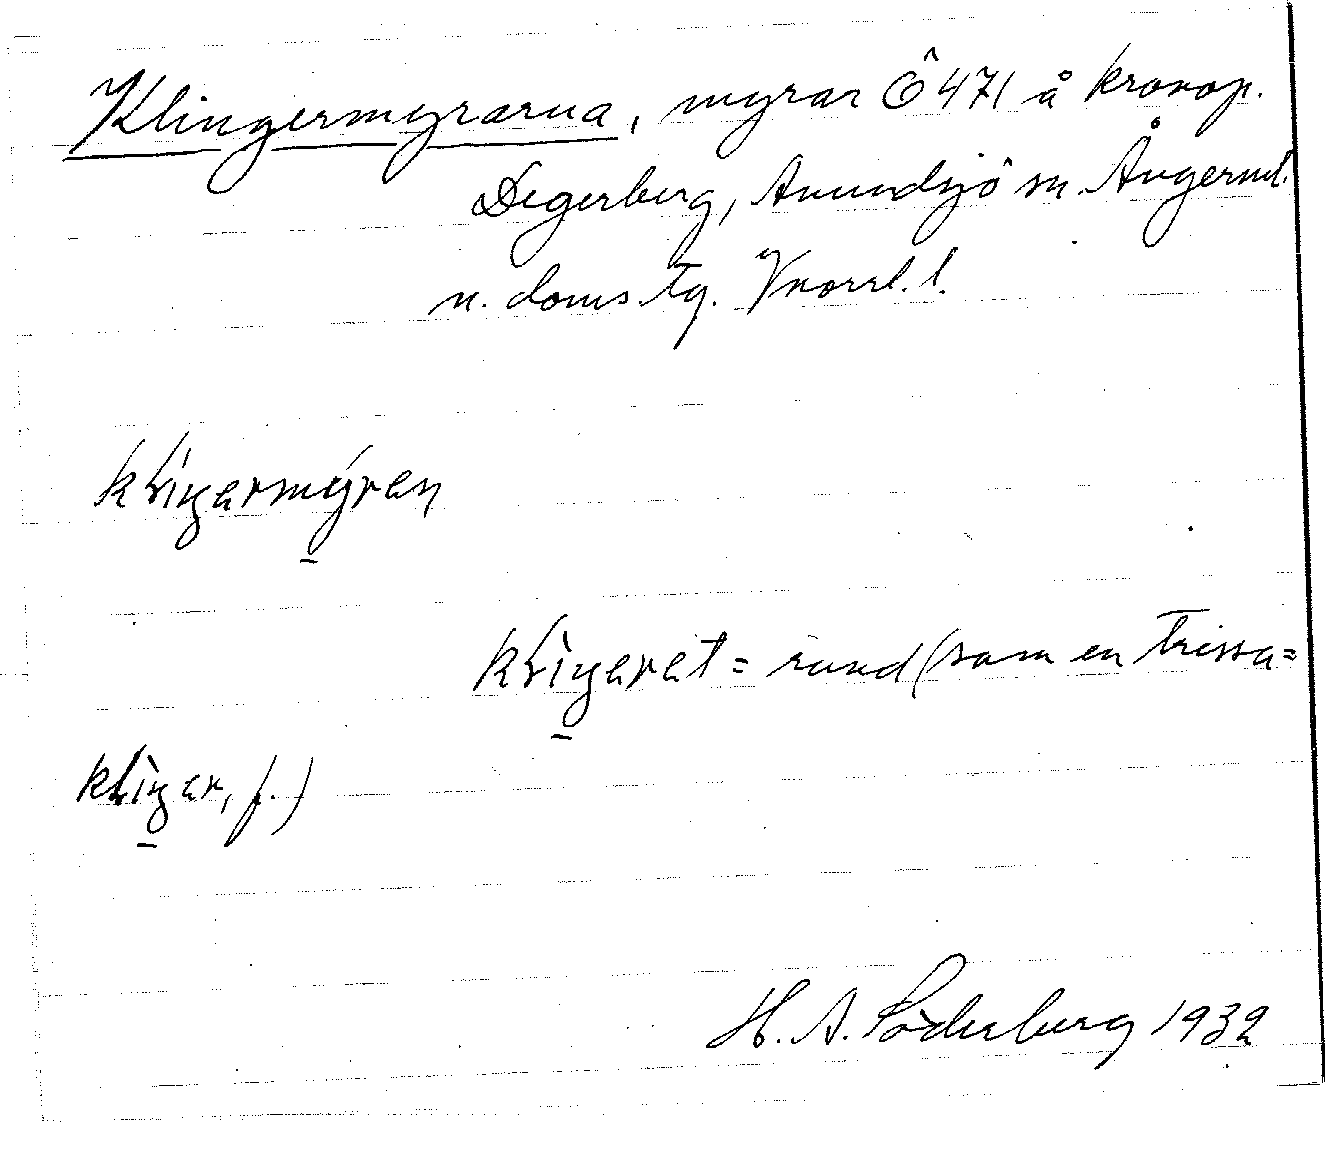 Klingermyrarna, myrar Ö 471 å kronop.
Degerberg, Anundsjö sn. Ångerml.
n. doms tg. Vnorrl. l.
kliŋermýren
klìŋeret = rund (som en trissa =
klìŋer, f.)
H. A. Söderberg 1932